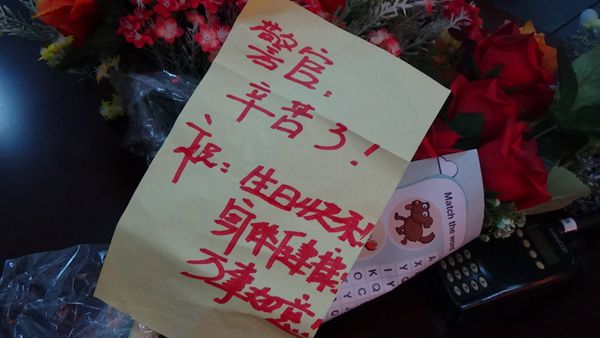 警官:
辛苦了!
祝: 生日快乐
身体健康
万事如意!
Match the